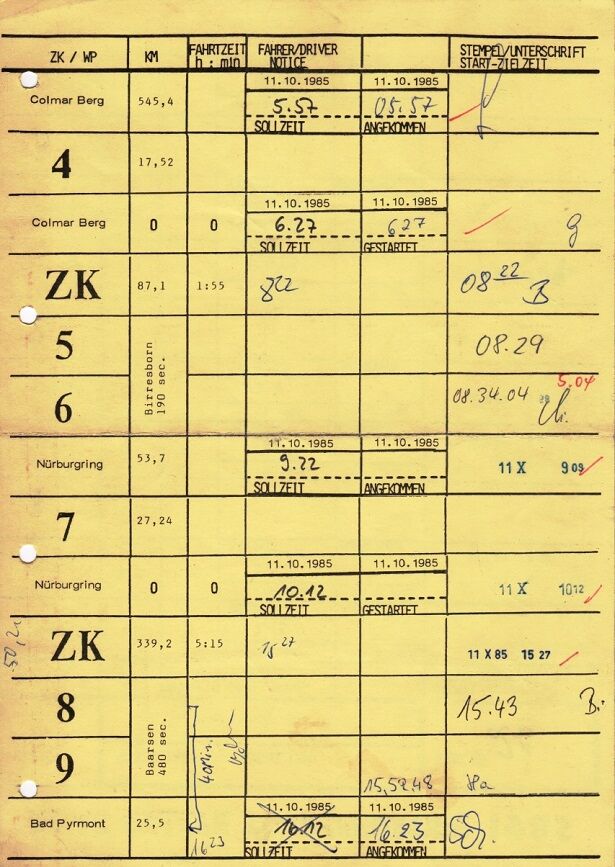 ZK / WP KM FAHRTZEIT h : min FAHRER/DRIVER NOTICE STEMPEL/UNTERSCHRIFT START-ZIELZEIT
11.10.1985 11.10.1985
Colmar Berg 545,4 5.57 05.57
SOLLZEIT ANGEKOMMEN
4 17,52
11.10.1985 11.10.1985
Colmar Berg 0 0 6.27 627
SOLLZEIT GESTARTET
ZK 87,1 1:55 822 08 22 B
5 08.29
Birresborn
190 sec.
6 08.34.04 5.04
11.10.1985 11.10.1985
Nürburgring 53,7 9.22 11 X 9 09
SOLLZEIT ANGEKOMMEN
7 27,24
11.10.1985 11.10.1985
Nürburgring 0 0 10.12 11 X 10 12
SOLLZEIT GESTARTET
ZK 339,2 5:15 15 27 11 X 85 15 27
8 15.43 B.
Baarsen
480 sec.
40 Min.
9 15,5248
11.10.1985 11.10.1985
Bad Pyrmont 25,5 1623 16.12 16.23
SOLLZEIT ANGEKOMMEN